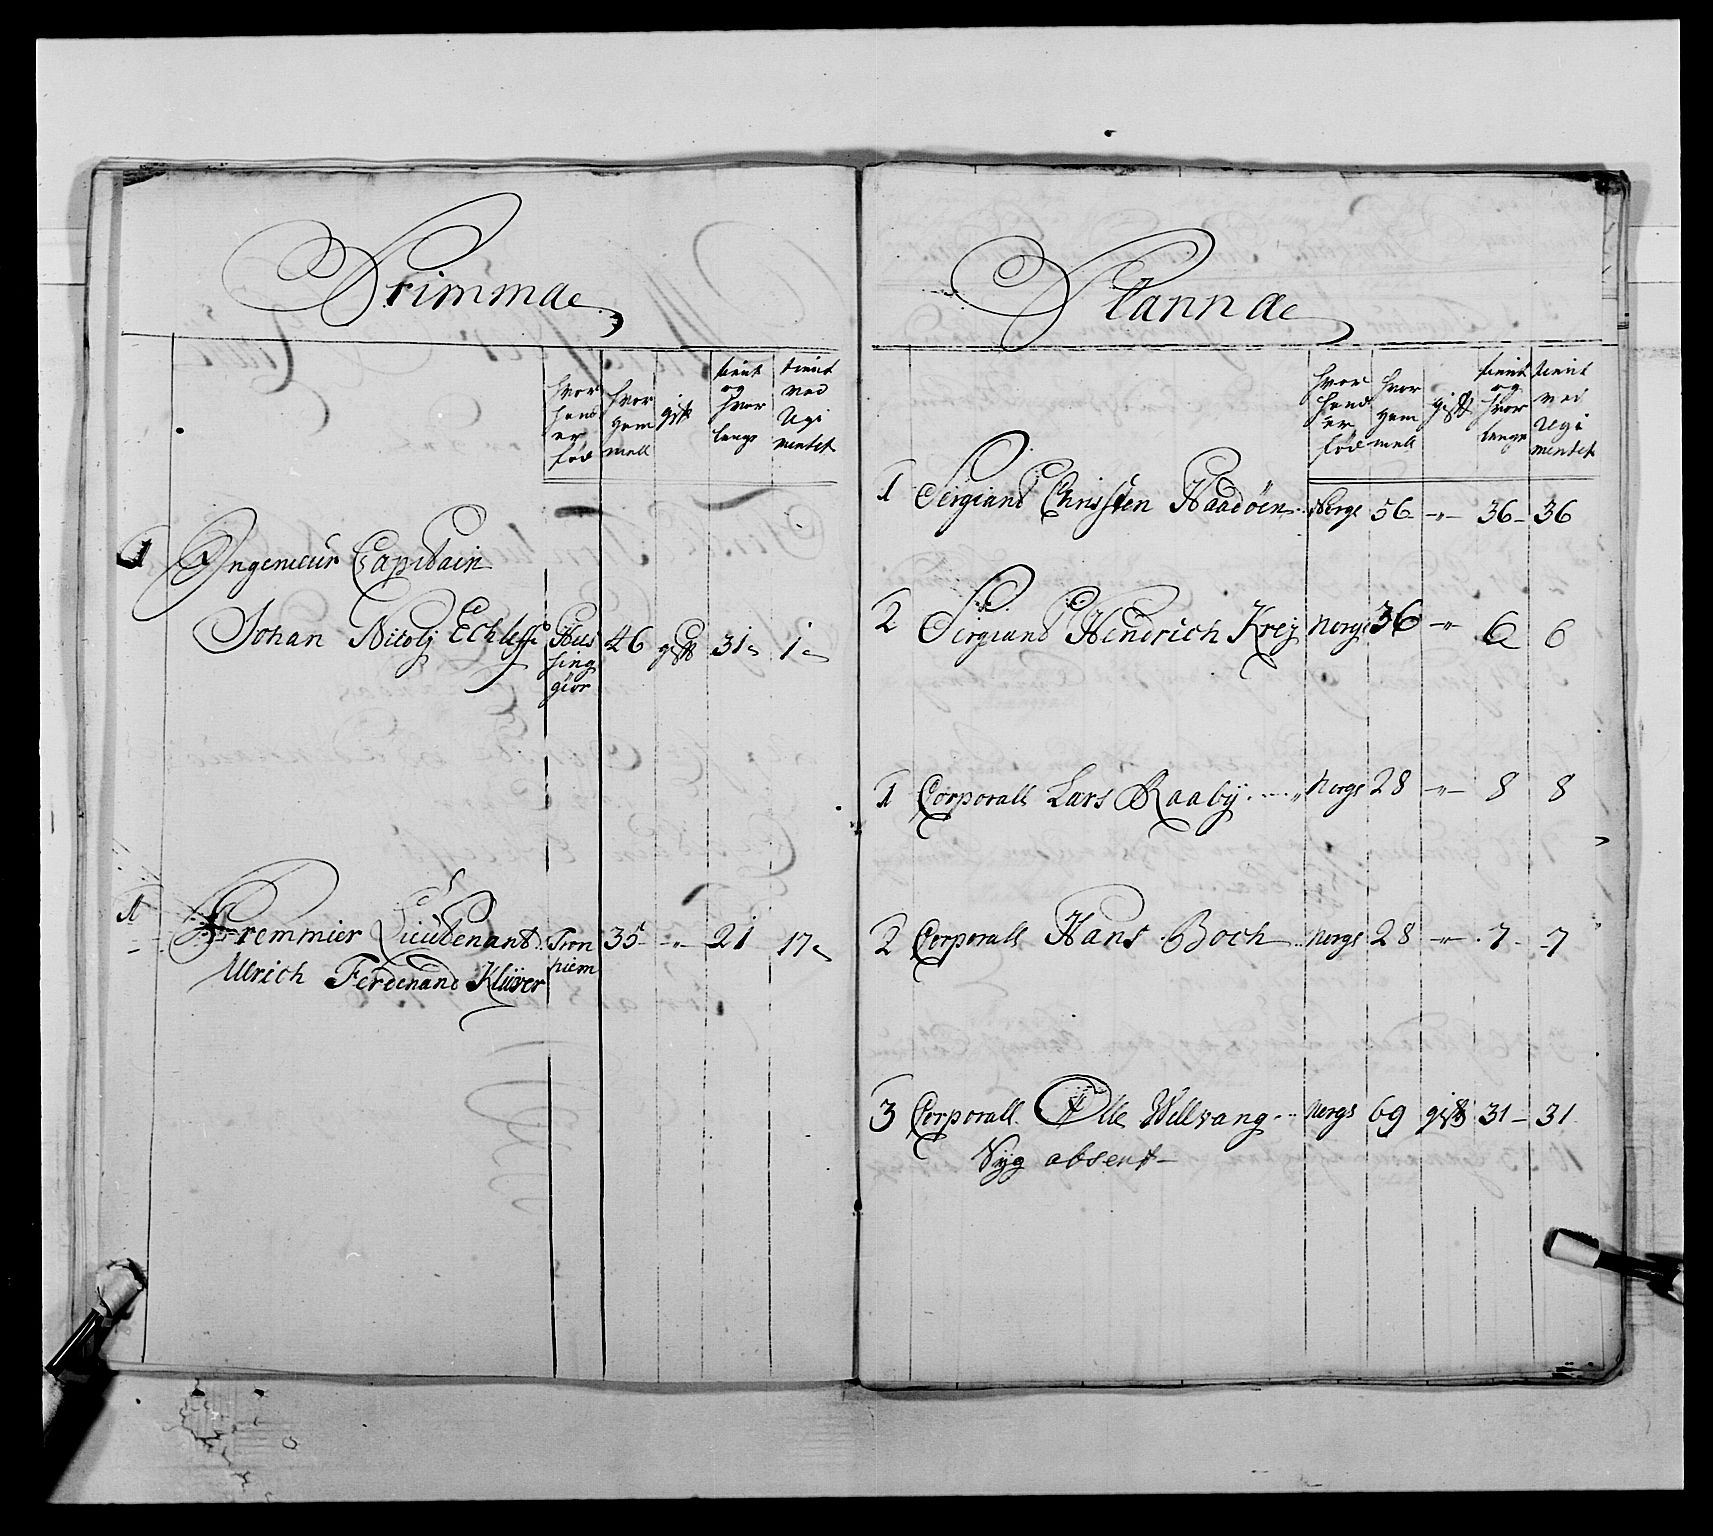 Primma
hvor hand er fød
hvor gam mell
gift
tient og hvor lenge
tienit ved Regi mentet
1 Ingenieur Capitain
Johan Nicolj Echleff Hel sing giør 46 gift 31 1
1 Premmier Lieutenant Tron hiem 35 -"- 21 17
Ulrich Ferdenand Klüver
Planna
hvor hand er fød
hvor gam mell
gift
tienit og hvor lenge
tienit ved Regi mentet
1 Sergiant Christen Haadøen Norge 56 -"- 36 - 36
2 Sergiant Hendrich Krey Norge 36 -"- 6 6
1 Corporall Lars Raaby Norge 28 -"- 8 8
2 Corporall Hans Boch Norge 28 -"- 7 - 7
3 Corporall Olle Wellvang Norge 69 gift 31 - 31
Syg absent